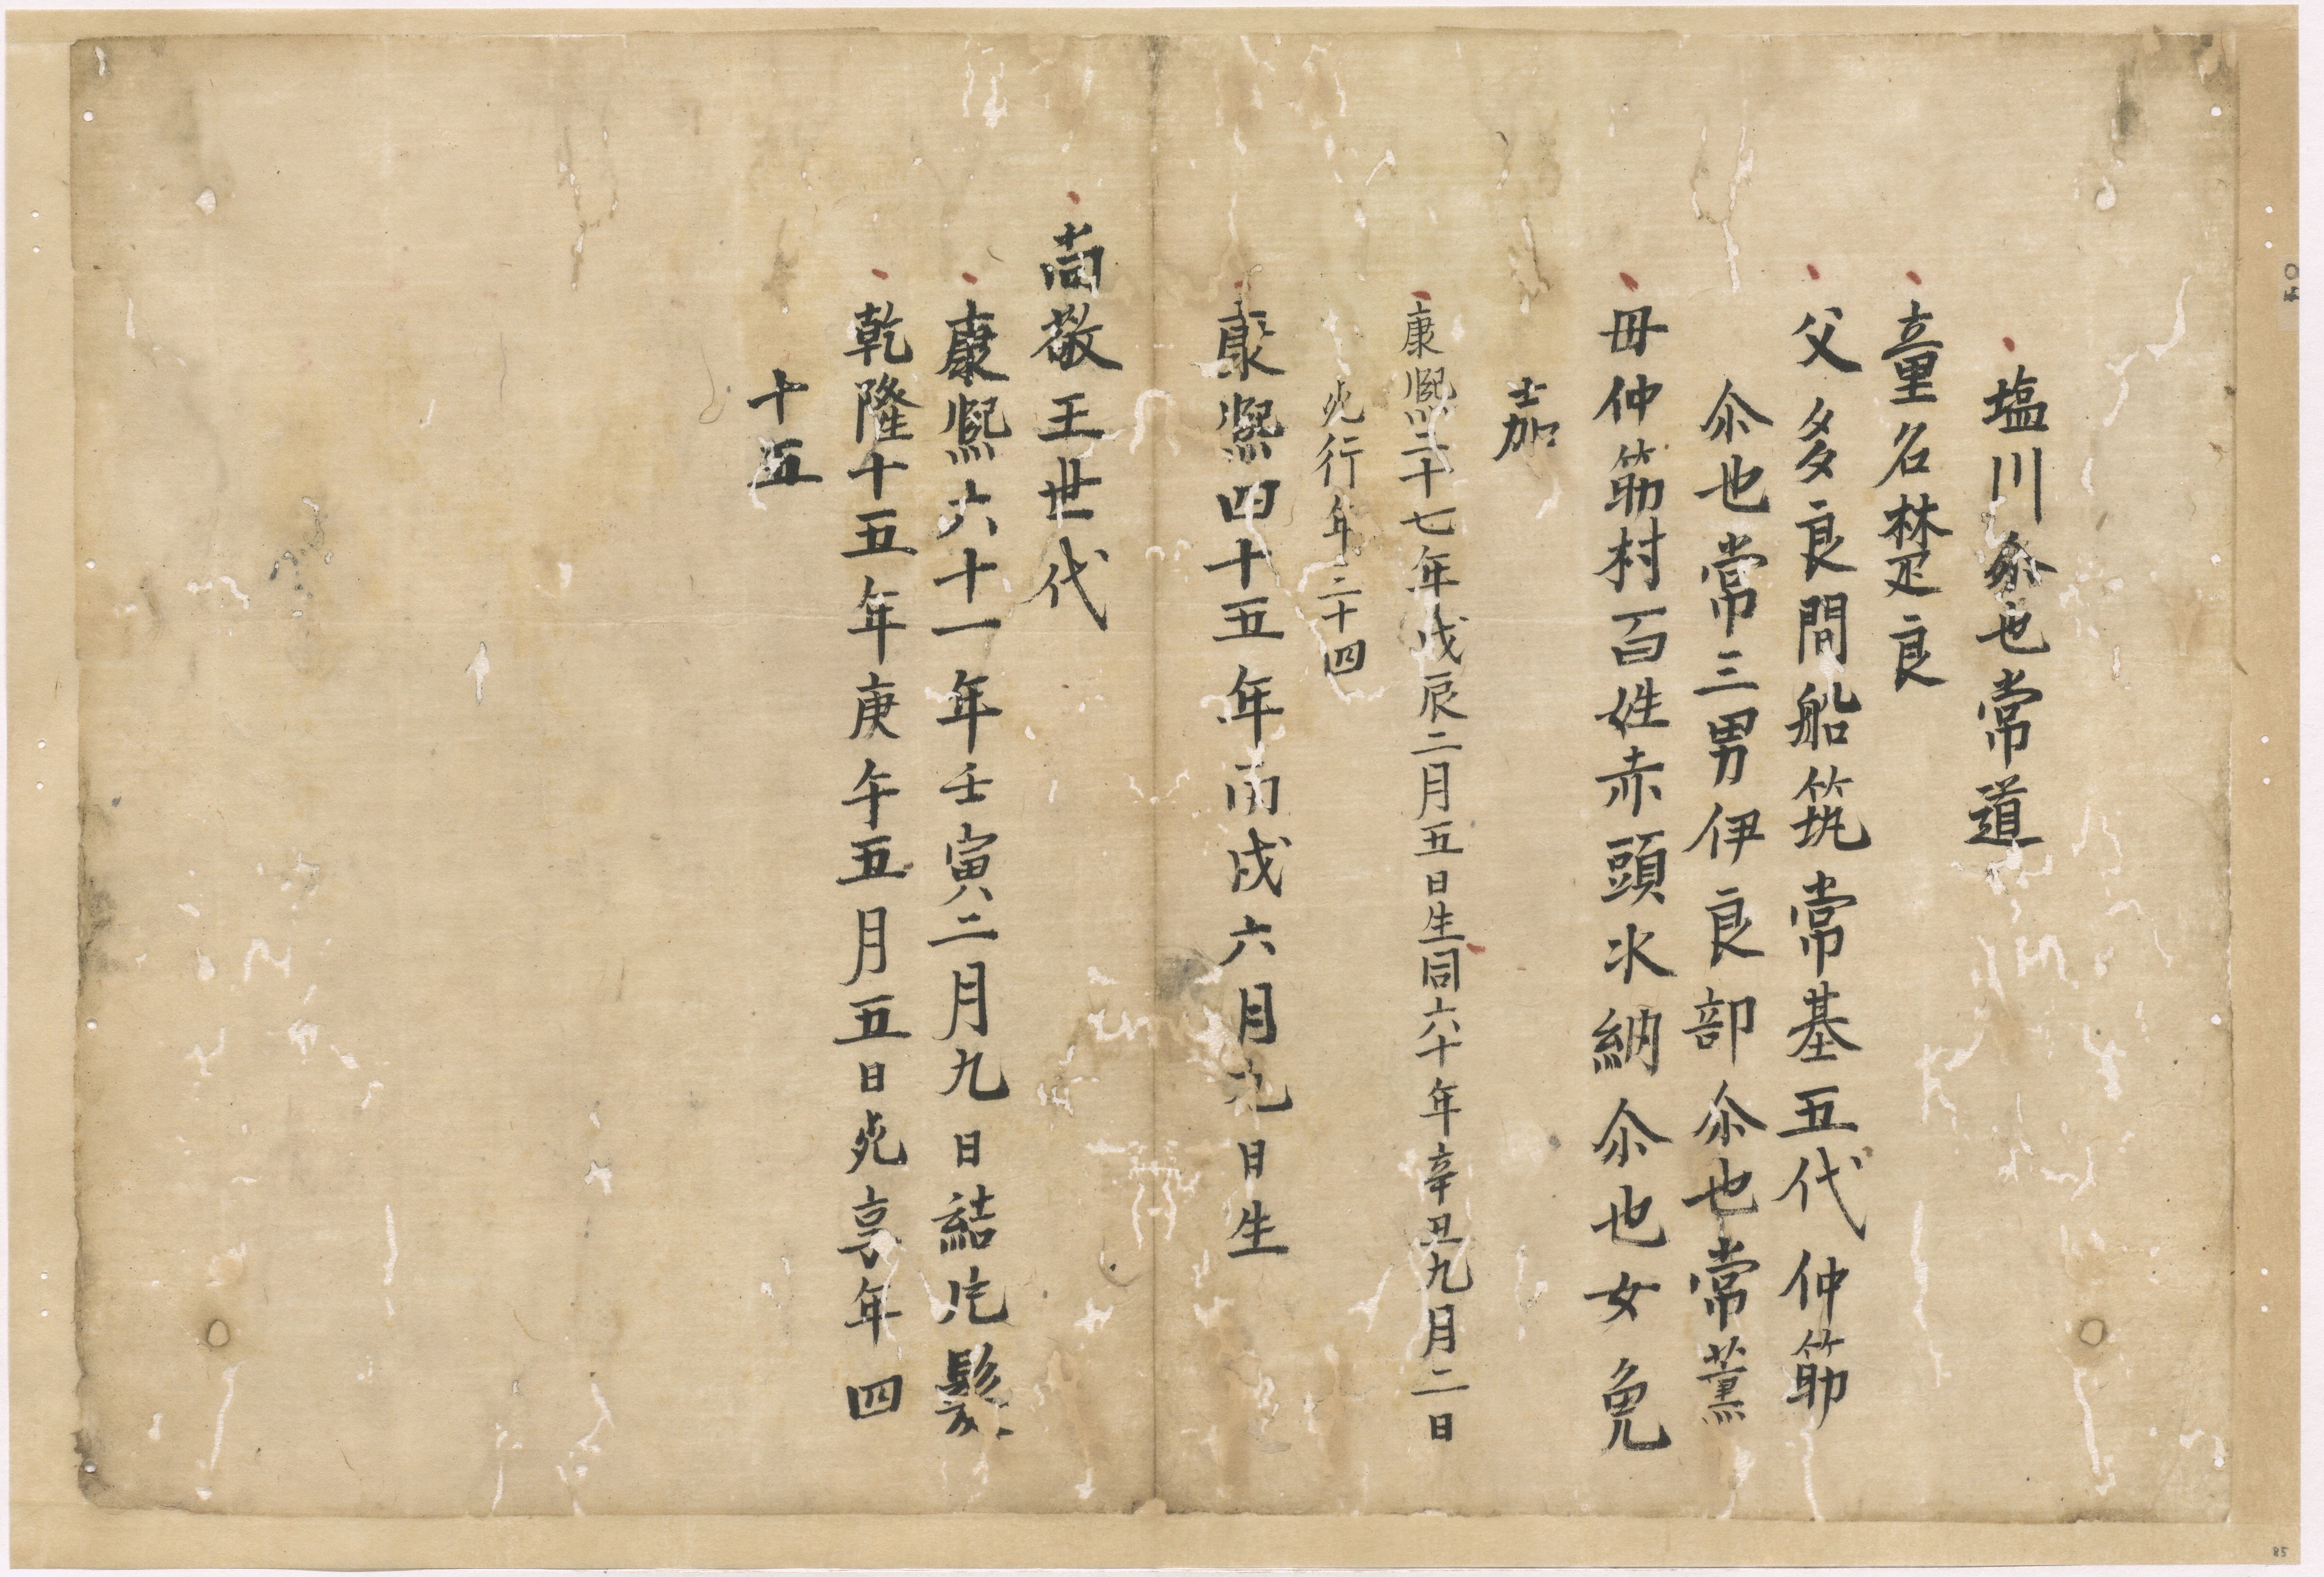 塩川尒也常道
童名楚良
父多良間船筑常基五代仲筋
尒也常三男伊良部尒也常薫
母仲筋村百姓赤頭氷納尒也女免
嘉
康熙二十七年戊辰二月五日生同六十年辛丑九月二日
死行年三十四
康熙四十五年丙戌六月九日生
尚敬王世代
康熙六十一年壬寅二月九日結片髪
乾隆十五年庚午五月五日死享年四
十五
85